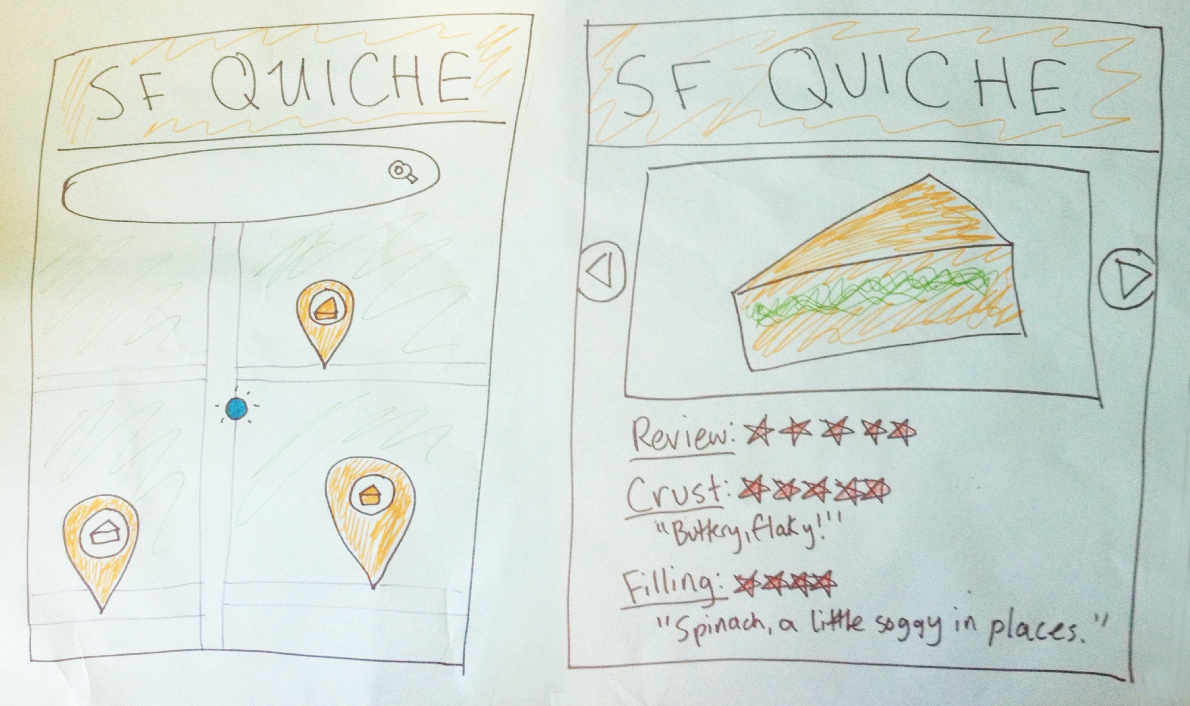 SF QUICHE
SF QUICHE
Review:
Crust:
"Buttery, flaky!"
Filling:
"Spinach, a little soggy in places."